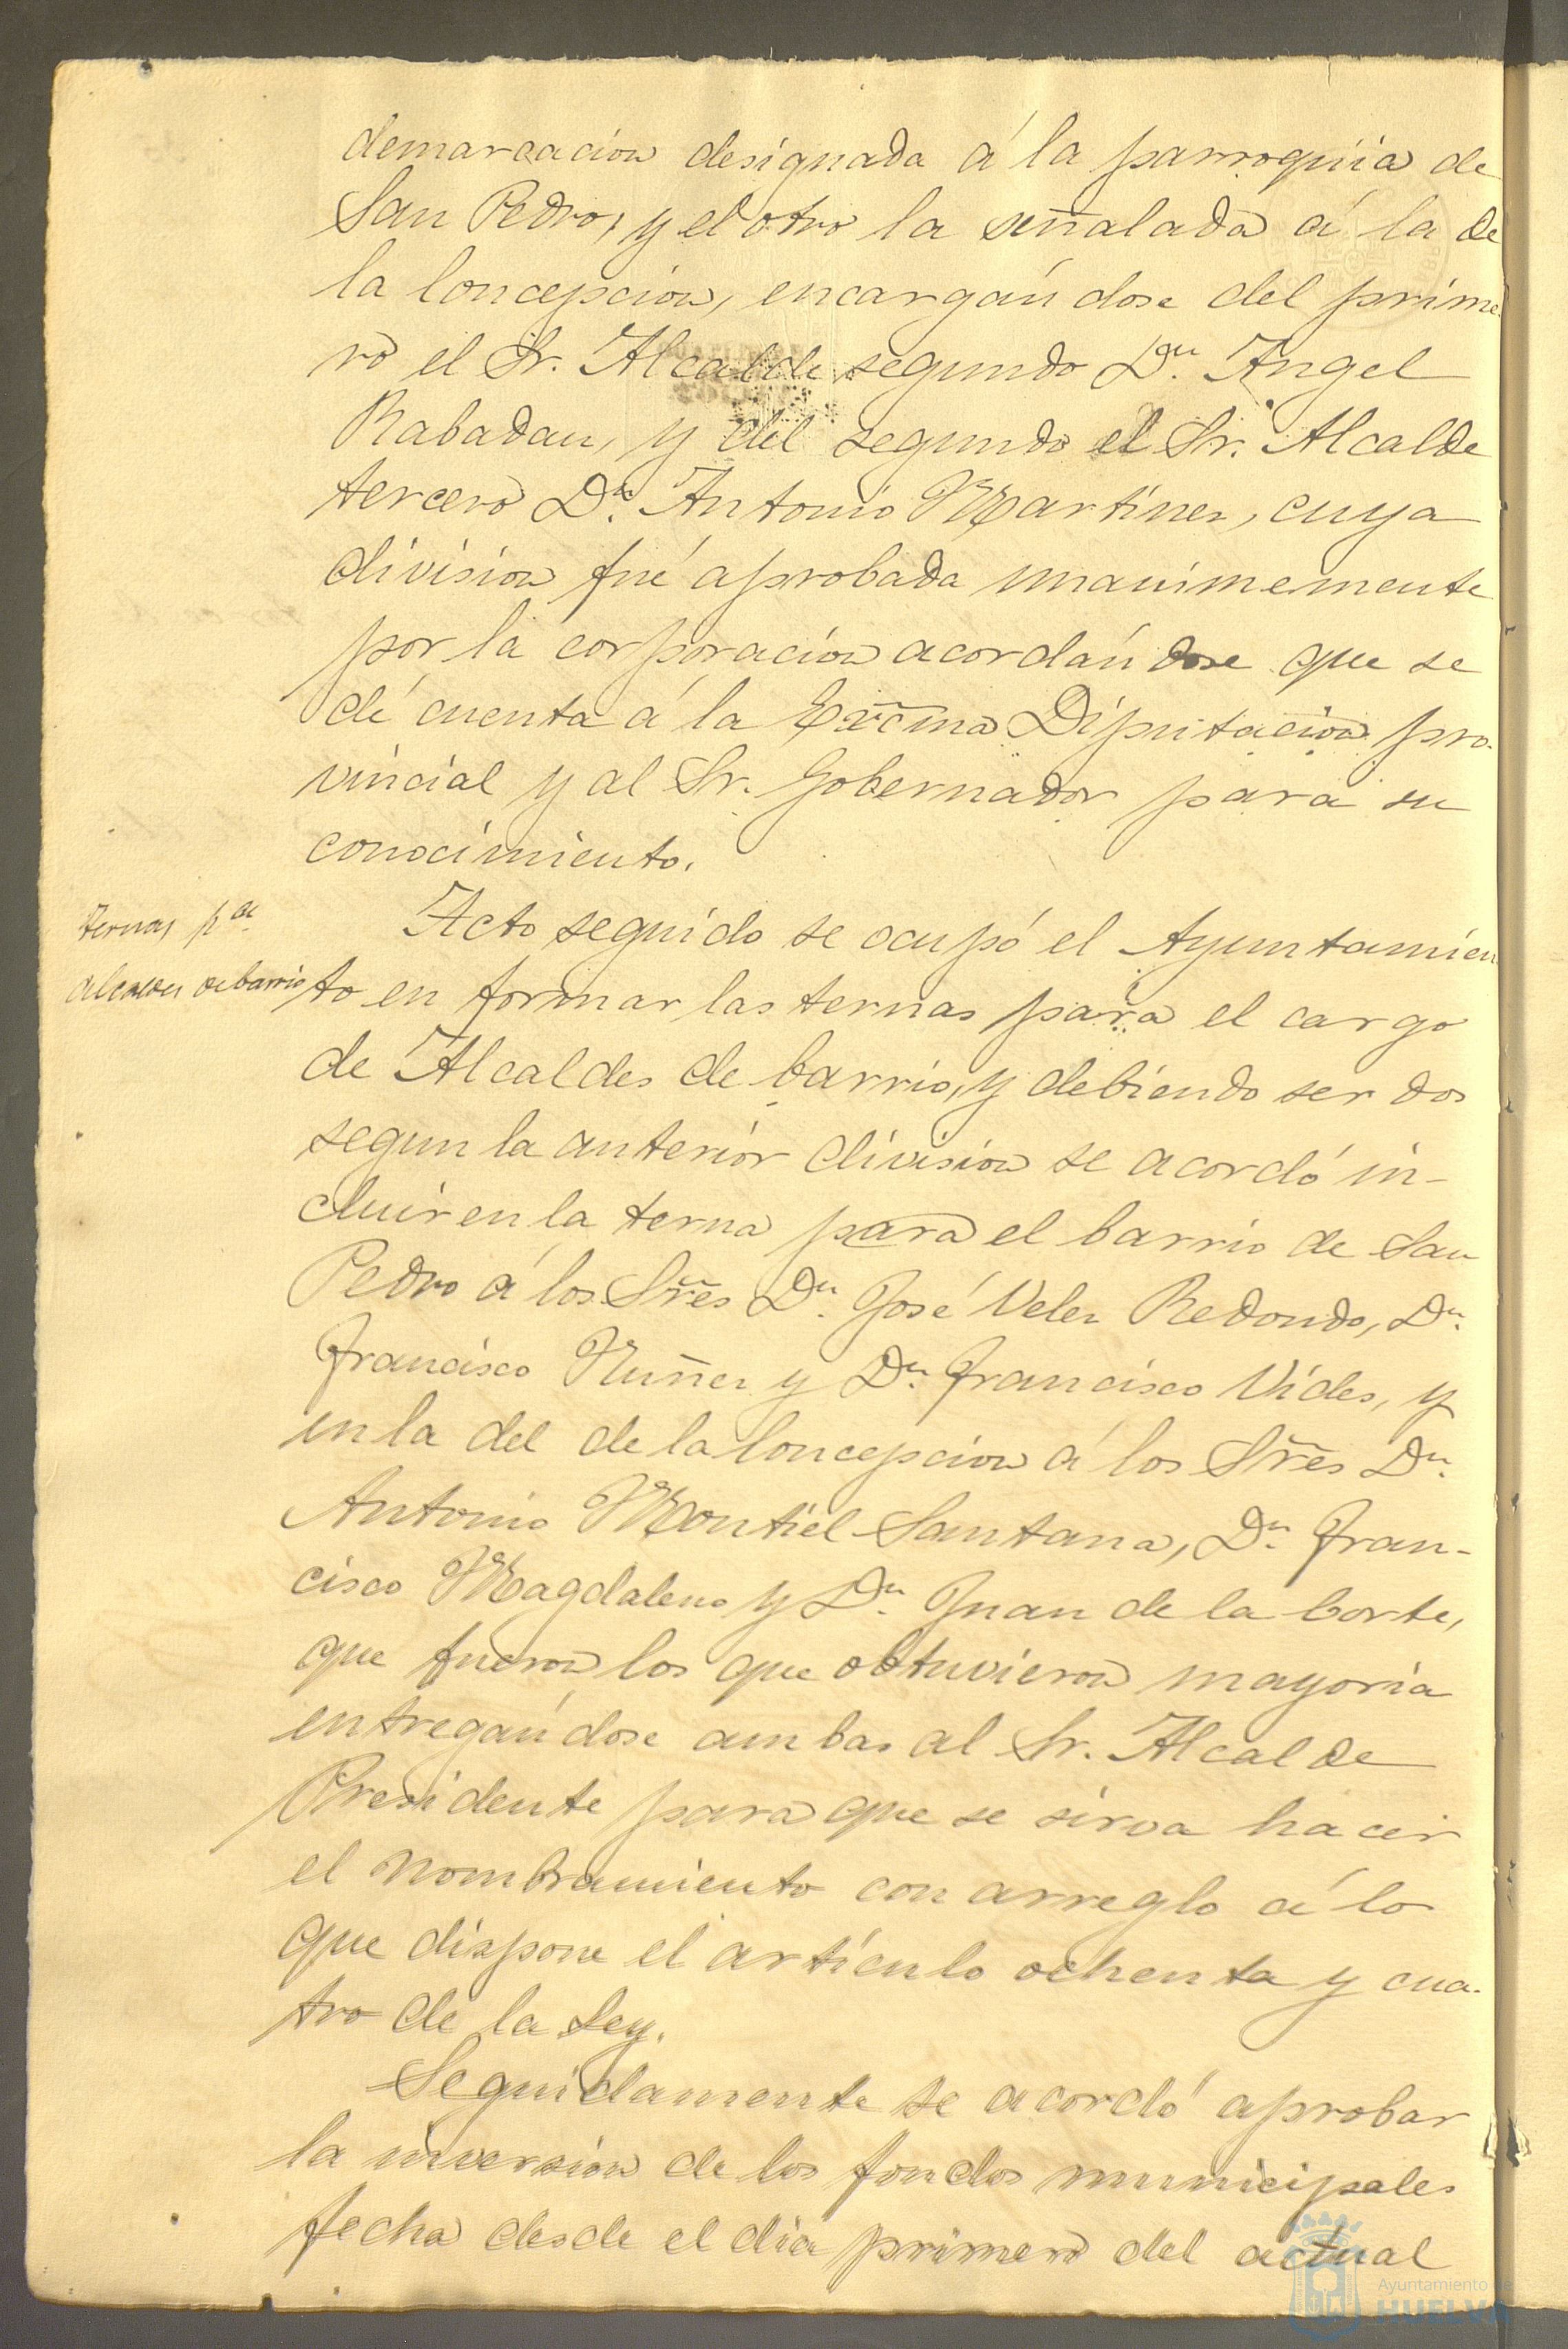 demarcacion designada á la parroquia de
San Pedro, y el otro la señalada á la de
la Concepcion, encargándose del prime
ro el Sr. Alcalde segundo Dn. Angel
Rabadan, y del segundo el Sr. Alcalde
tercero Dn. Antonio Martinez, cuya
division fué aprobada unanimemente
por la corporacion acordándose que se
dé cuenta á la Excma Diputacion pro-
vincial y al Sr. Gobernador para su
conocimiento.
ternas pa.
alcaldes de barrio
Acto seguido se ocupó el Ayuntamien
to en formar las ternas para el cargo
de Alcaldes de barrio, y debiendo ser dos
segun la anterior division se acordó in-
cluir en la terna para el barrio de San
Pedro á los Sres Dn. José Velez Redondo, Dn.
Francisco Nuñez y Dn. Francisco Vides, y
en la del de la Concepcion á los Sres Dn.
Antonio Montiel Santana, Dn. Fran-
cisco Magdaleno y Dn. Juan de la Corte,
que fueron los que obtuvieron mayoria
entregándose ambas al Sr. Alcalde
Presidente para que se sirva hacer
el nombramiento con arreglo á lo
que dispone el artículo ochenta y cua-
tro de la Ley.
Seguidamente se acordó aprobar
la inversion de los fondos municipales
fecha desde el dia primero del actual
Ayuntamiento de
HUELVA